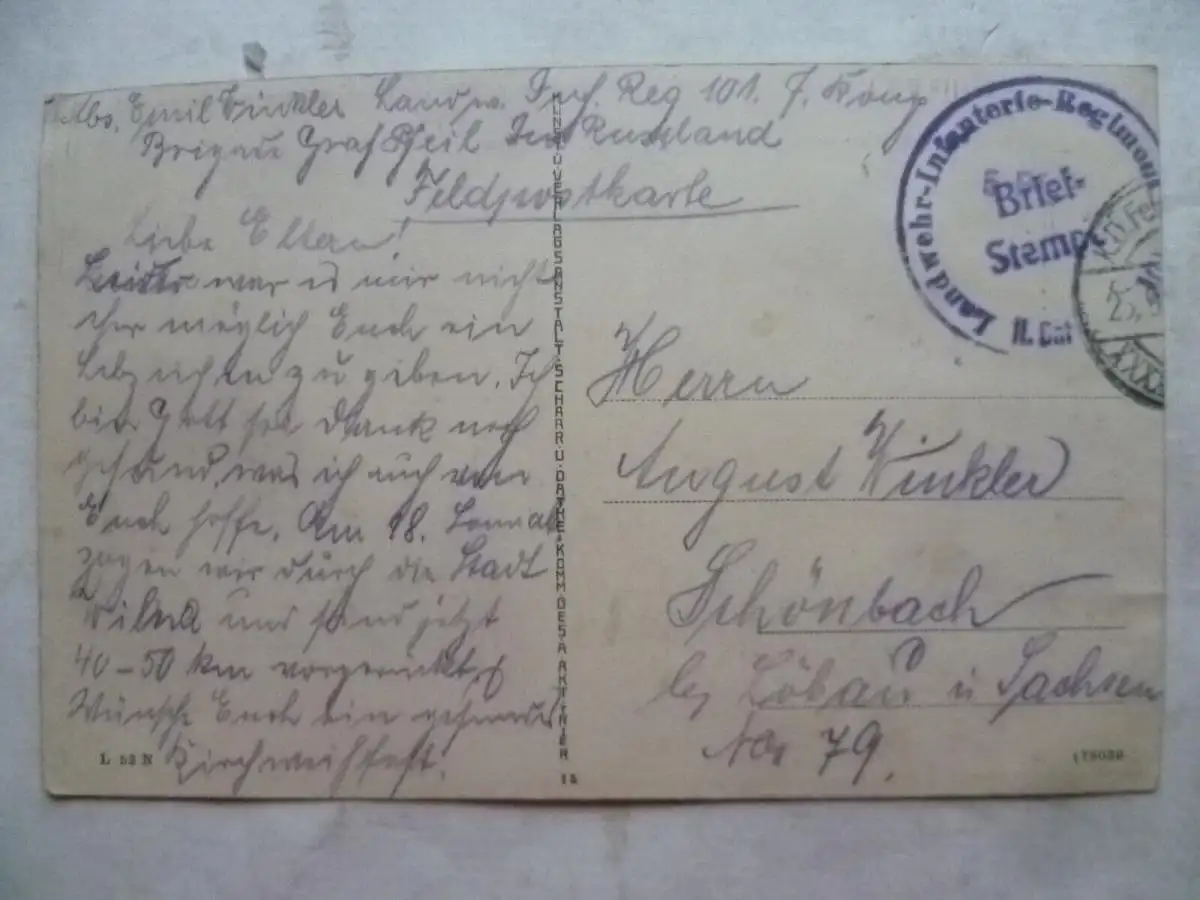 Abs. Emil Winkler Landw. Inf. Reg 101. 7. Komp
Brigade Graf Pfeil In Russland
Feldpostkarte
Liebe Eltern!
Leider war es mir nicht
eher möglich Euch ein
Lebzeichen zu geben. Ich
bin Gott sei Dank noch
gesund, was ich auch von
Euch hoffe. Am 18.
zogen wir durch die Stadt
Wilna und sind jetzt
40-50 km vorgerückt
Wünsche Euch ein gesundes
Kirchweihfest.
KUNST- U. VERLAGSANSTALT SCHAAR U. DATHE KOMM. GES. A. AKT. TRIER
L 52 N
Landwehr-Infanterie-Regiment
Brief-
Stemp
II. Bat
25.
Herrn
August Winkler
Schönbach
bei Löbau i Sachsen
No 79.
178039